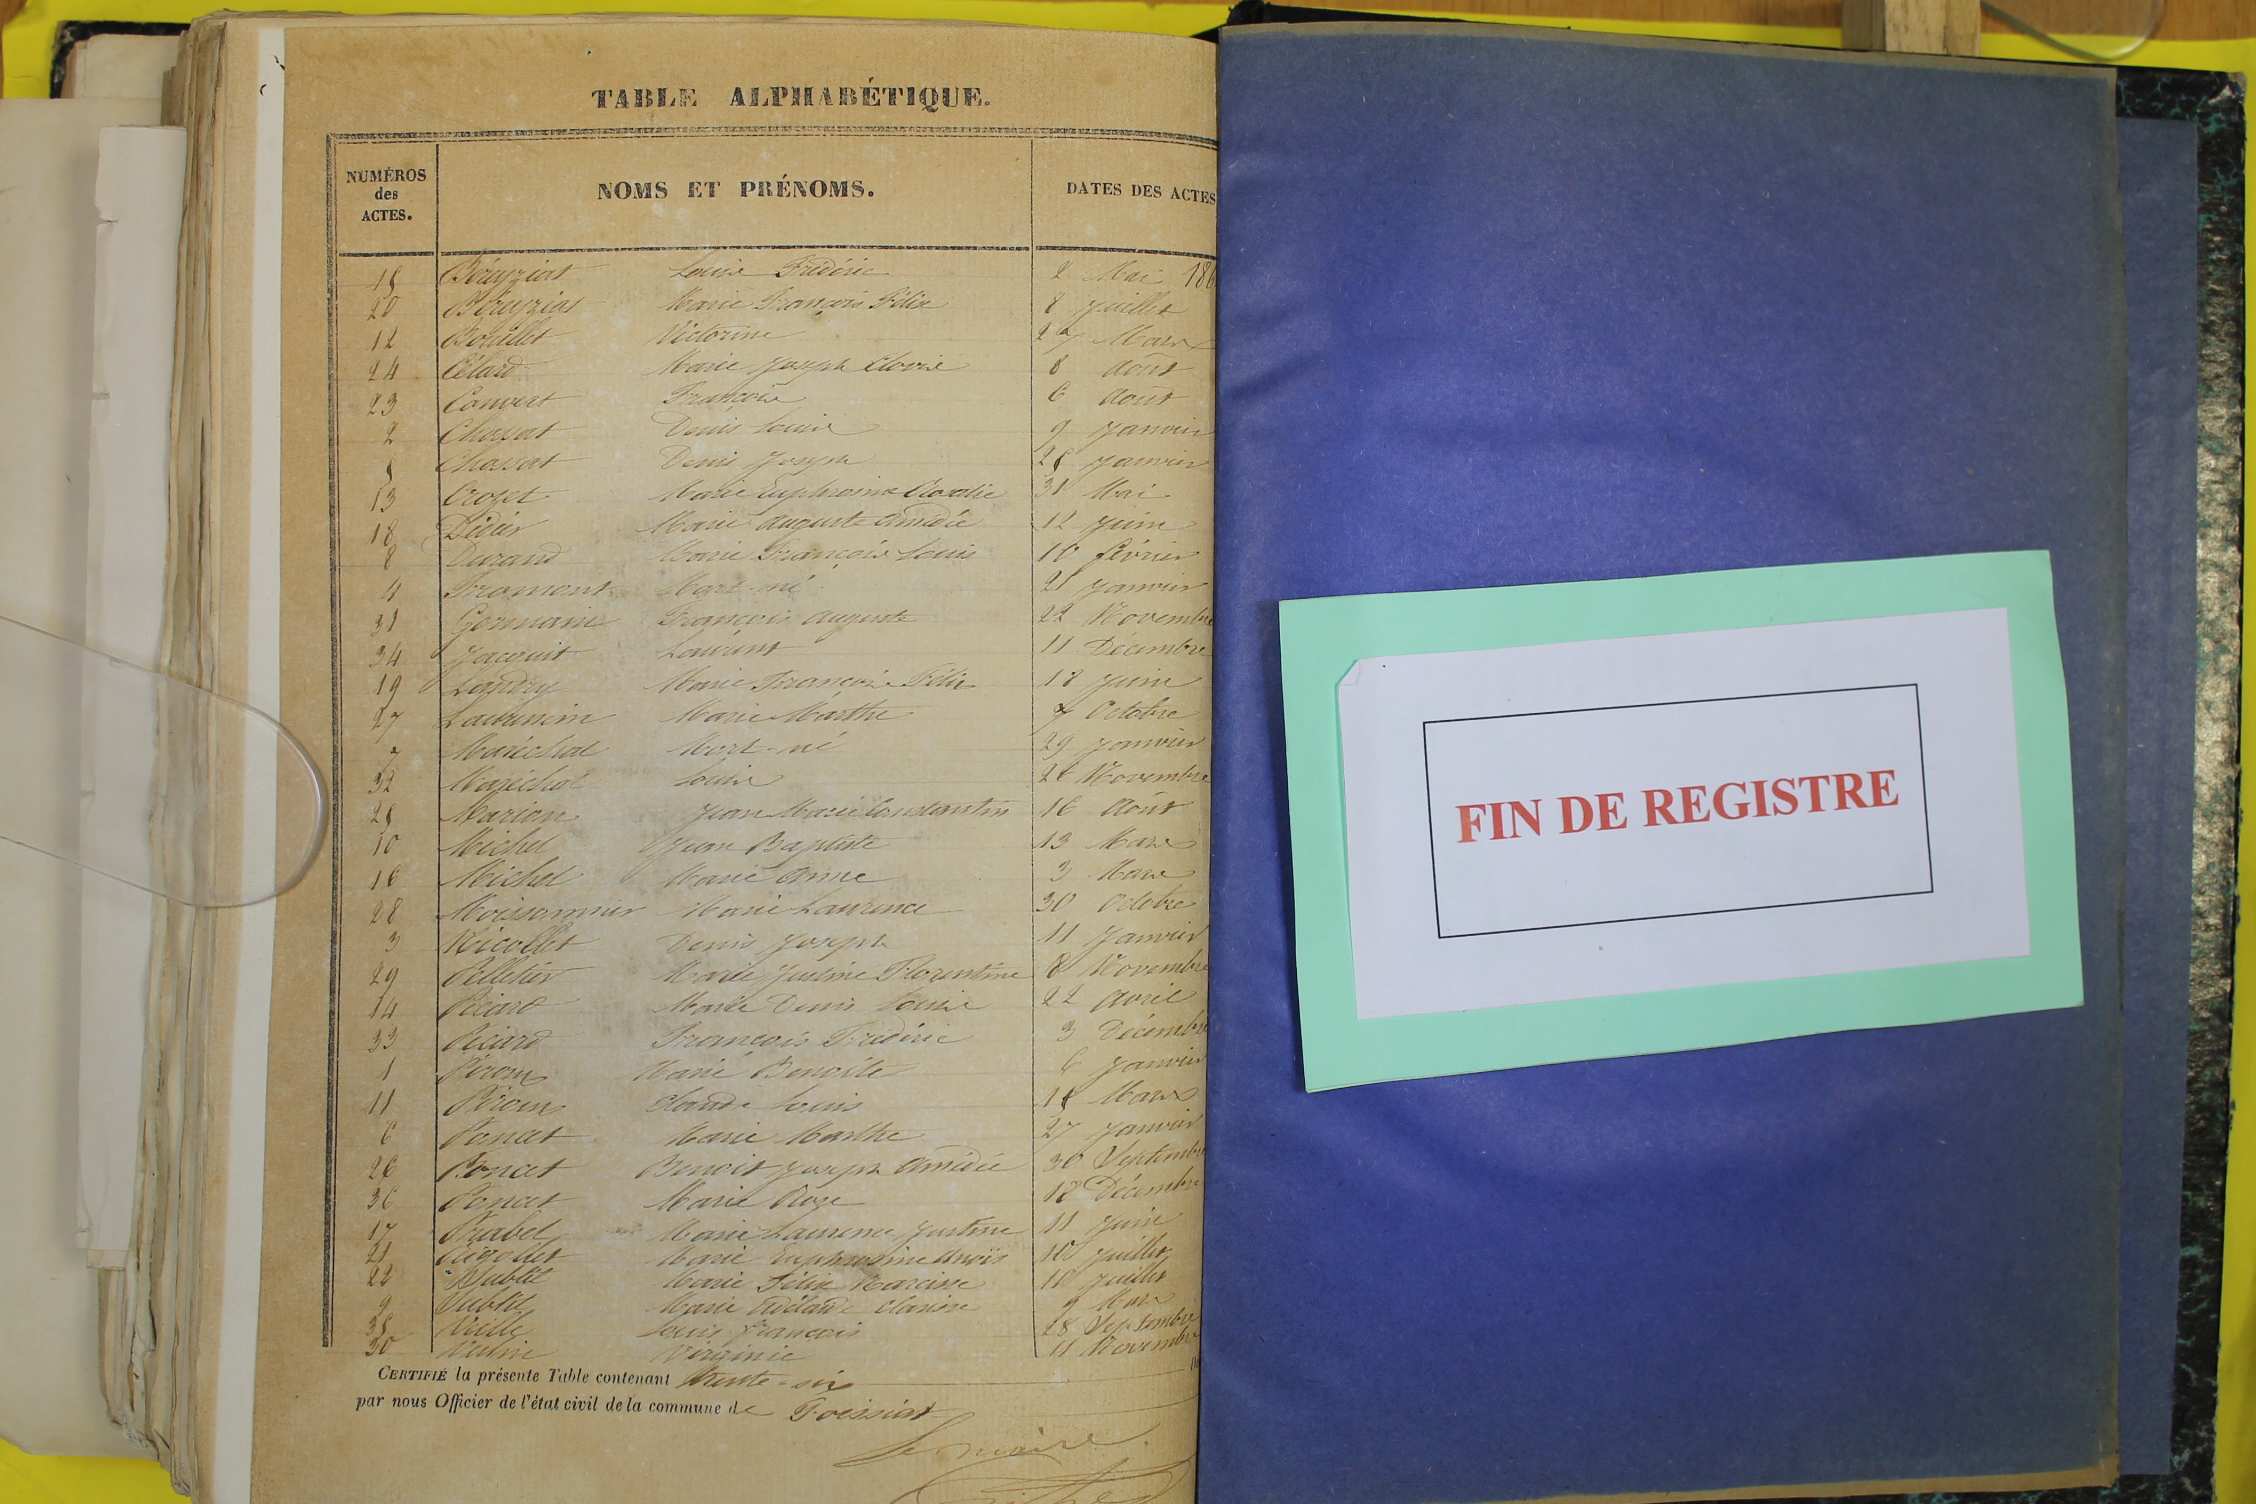 TABLE ALPHABÉTIQUE.
NUMÉROS des ACTES. NOMS ET PRÉNOMS. DATES DES ACTES
Louise Frédéric 2 Mai 186
20 Marie François Félix 8 Juillet
12 Victorine 27 Mars
24 Célard Marie Joseph Clovis 8 Août
23 Convert François 6 Août
2 Chossat Denis Louis 9 Janvier
Chossat Denis Joseph Janvier
13 Crozet Marie Euphrosine Rosalie 31 Mai
18 Didier Marie Auguste Amédée 12 Juin
8 Durand Marie François Louis 10 février
4 Fromont Mort-né 21 Janvier
31 Germain François Auguste 22 Novembre
34 Laurent 11 Décembre
19 Landry Marie Félix 18 Juin
27 Laurencin Marie Marthe 7 Octobre
7 Maréchal Mort-né 29 Janvier
32 Maréchal Louise 26 Novembre
Marion Jean Marie Constantin 16 Août
10 Michel Jean Baptiste 13 Mars
16 Michel Marie Anne 3 Mars
28 Moissonnier Marie Laurence 30 Octobre
3 Nicollet Denis Joseph 11 Janvier
29 Pelletier Marie Justine Florentine 8 Novembre
14 Picard Marie Denis Louise 22 Avril
33 Picard François Frédéric 3 Décembre
1 Piron Marie Benoîte 6 Janvier
11 Piron Claude Louis Mars
6 Poncet Marie Marthe 27 Janvier
26 Poncet Benoit Joseph Amédée 30 Septembre
36 Poncet Marie Roze 18 Décembre
17 Prabel Marie Laurence Justine 11 Juin
21 Rigollet Marie Euphrosine 10 Juillet
22 Subtil Marie Félix Narcisse 10 Juillet
9 Subtil Marie Clarisse 9 Mars
Louis François 28 Septembre
30 Virginie 11 Novembre
CERTIFIÉ la présente Table contenant trente-six
par nous Officier de l'état civil de la commune de Foissiat
Le maire
FIN DE REGISTRE